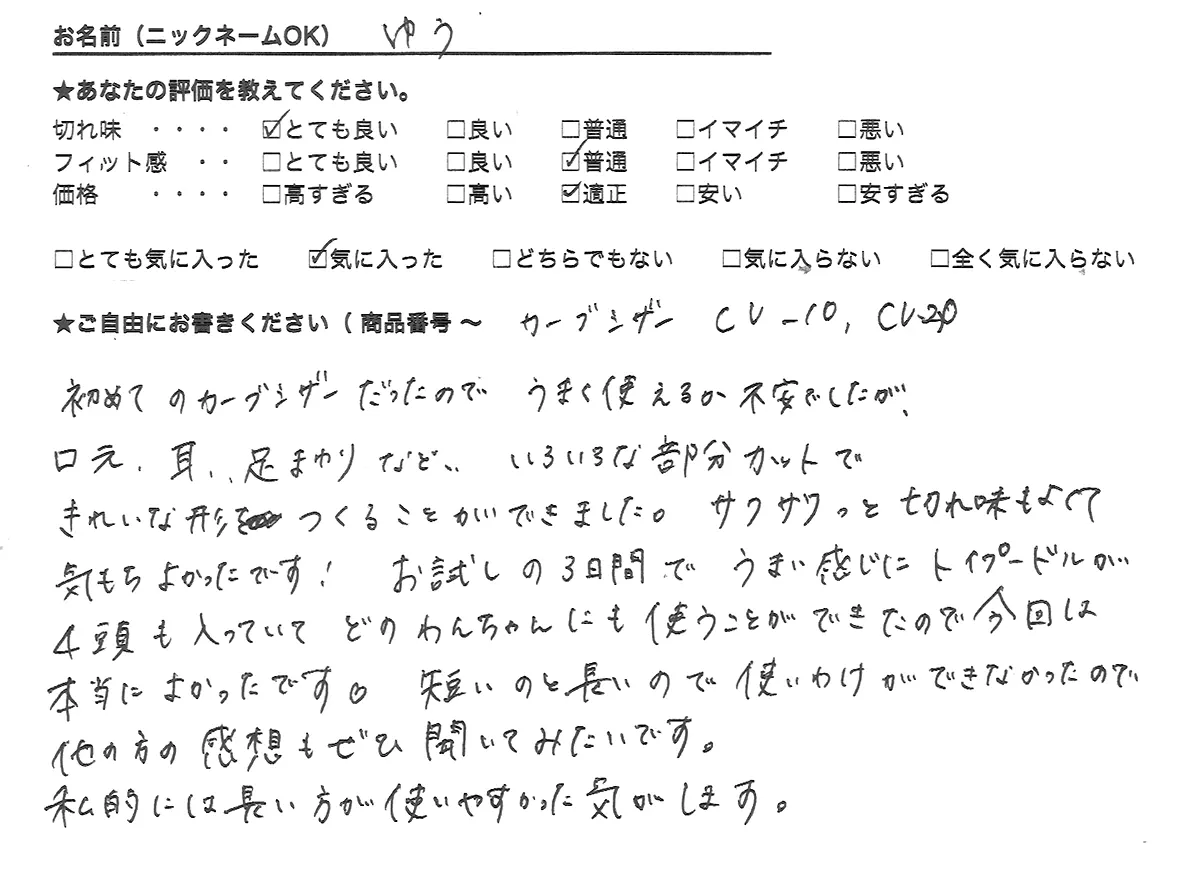 お名前（ニックネームOK） ゆう
★あなたの評価を教えてください。
切れ味 ・・・・ ☑とても良い □良い □普通 □イマイチ □悪い
フィット感 ・・ □とても良い □良い ☑普通 □イマイチ □悪い
価格 ・・・・ □高すぎる □高い ☑適正 □安い □安すぎる
□とても気に入った ☑気に入った □どちらでもない □気に入らない □全く気に入らない
★ご自由にお書きください（ 商品番号 ～ カーブシザー CV-10, CV-20
初めてのカーブシザーだったので うまく使えるか不安でしたが、
口元、耳、足まわりなど、 いろいろな部分カットで
きれいな形を つくることができました。 サクサクっと切れ味もよくて
気もちよかったです! お試しの3日間で うまい感じにトイプードルが
4頭も入っていて どのわんちゃんにも使うことができたので今回は
本当によかったです。 短いのと長いので使いわけができなかったので
他の方の感想もぜひ聞いてみたいです。
私的には長い方が使いやすかった気がします。